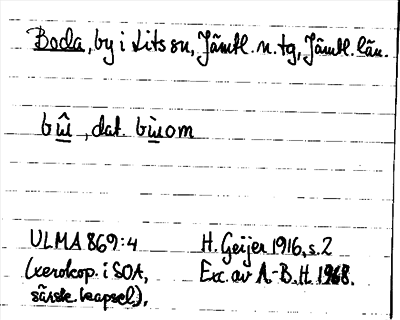 Boda, by i Lits sn, Jämtl. n. tg, Jämtl. län.
bɯ̂, dat. bɯ̀om
ULMA 869:4 H. Geijer 1916, s. 2
(xerokop. i SOA, Exc. av A.-B. H. 1968.
särsk. kapsel).